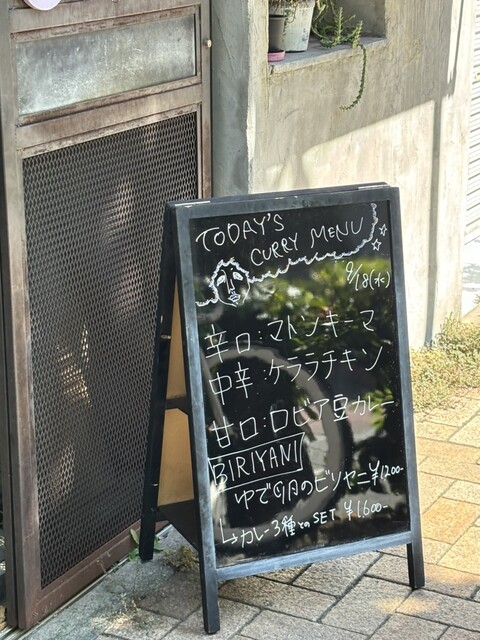 TODAY'S
CURRY MENU
9/18(水)
辛口:マトンキーマ
中辛:ケララチキン
甘口:ロビア豆カレー
BIRIYANI
ゆで卵のビリヤニ ¥1200-
↳カレー3種とのSET ¥1,600-